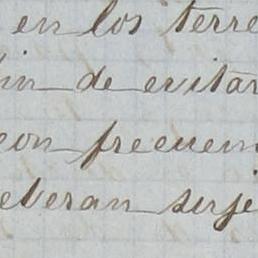 en los terre
in de evitar
con frecuen
eberan surji